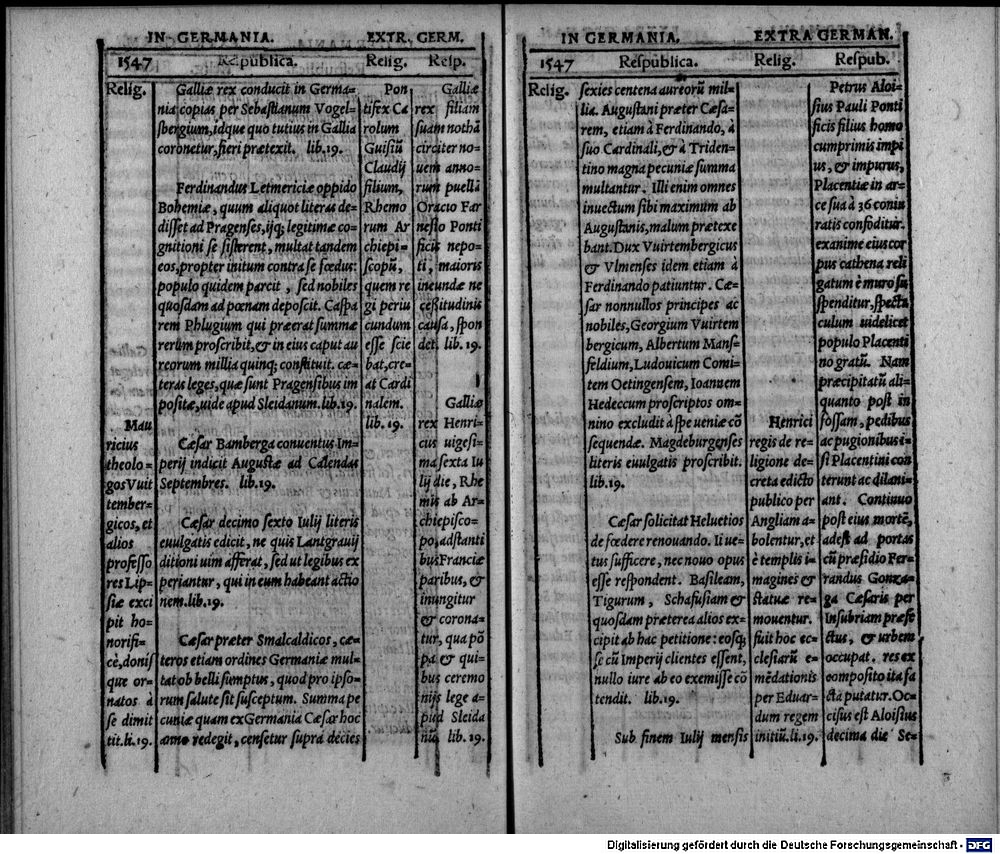 IN GERMANIA. EXTR. GERM.
1547 Respublica. Relig. Resp.
Relig.
Mau
ricius
theolo-
gos Vuit
tember-
gicos, et
alios
professo
res Lip-
siæ exci
pit ho-
norifi-
cè, donis
que or-
natos à
se dimit
tit. li. 19.
Galliæ rex conducit in Germa-
nia copias per Sebastianum Vogel-
sbergium, idque quo tutius in Gallia
coronetur, fieri prætexit. lib. 19.
Ferdinandus Letmericiæ oppido
Bohemiæ, quum aliquot literas de-
disset ad Pragenses, ijsq; legitimæ co-
gnitioni se sisterent, multat tandem
eos, propter initum contra se fœdus:
populo quidem parcit, sed nobiles
quosdam ad pœnam deposcit. Caspa
rem Phlugium qui præerat summæ
rerum proscribit, & in eius caput au
reorum millia quinq; constituit. cæ-
teras leges, quæ sunt Pragensibus im
positæ, uide apud Sleidanum. lib. 19.
Cæsar Bamberga conuentus Im-
perij indicit Augustæ ad Calendas
Septembres. lib. 19.
Cæsar decimo sexto Iulij literis
euulgatis edicit, ne quis Lantgrauij
ditioni uim afferat, sed ut legibus ex
periantur, qui in eum habeant actio
nem. lib. 19.
Cæsar præter Smalcaldicos, cæ-
teros etiam ordines Germaniæ mul-
tat ob belli sumptus, quod pro ipso-
rum salute sit susceptum. Summa pe
cuniæ quam ex Germania Cæsar hoc
anno redegit, censetur supra decies
Pon
tifex Ca
rolum
Guisiũ
Claudij
filium,
Rhemo
rum Ar
chiepi-
scopũ,
quem re
gi periu
cundum
esse scie
bat, cre-
at Cardi
nalem.
lib. 19.
Galliæ
rex filiam
suam nothã
circiter no-
uem anno-
rum puellã
Oracio Far
nesio Ponti
ficis nepo-
ti, maioris
ineundæ ne
cessitudinis
causa, spon
det. lib. 19.
Galliæ
rex Henri-
cus uigesi-
ma sexta Iu
lij die, Rhe
mis ab Ar-
chiepisco-
po, adstanti
bus Franciæ
paribus, &
inungitur
& corona-
tur, qua põ
pa & qui-
bus ceremo
nijs lege a-
pud Sleida
nũ. lib. 19.
IN GERMANIA. EXTRA GERMAN.
1547 Respublica. Relig. Respub.
Relig.
sexies centena aureorũ mil-
lia. Augustani præter Cæsa-
rem, etiam à Ferdinando, à
suo Cardinali, & à Triden-
tino magna pecuniæ summa
multantur. Illi enim omnes
inuectum sibi maximum ab
Augustanis, malum prætexe
bant. Dux Vuirtembergicus
& Vlmenses idem etiam à
Ferdinando patiuntur. Cæ-
sar nonnullos principes ac
nobiles, Georgium Vuirtem
bergicum, Albertum Mans-
feldium, Ludouicum Comi-
tem Oetingensem, Ioannem
Hedeccum proscriptos om-
nino excludit à spe ueniæ cõ
sequendæ. Magdeburgenses
literis euulgatis proscribit.
lib. 19.
Cæsar solicitat Heluetios
de fœdere renouando. Ii ue-
tus sufficere, nec nouo opus
esse respondent. Basileam,
Tigurum, Schafusiam &
quosdam præterea alios ex-
cipit ab hac petitione: eosq;
se cũ Imperij clientes essent,
nullo iure ab eo exemisse cõ
tendit. lib. 19.
Sub finem Iulij mensis
Henrici
regis de re-
ligione de-
creta edicto
publico per
Angliam a-
bolentur, et
è templis i-
magines &
statuæ re-
mouentur.
fuit hoc ec-
clesiarũ e-
mẽdationis
per Eduar-
dum regem
initiũ. li. 19.
Petrus Aloi-
sius Pauli Ponti
ficis filius homo
cumprimis impi
us, & impurus,
Placentiæ in ar-
ce sua à 36 coniu
ratis confoditur.
exanime eius cor
pus cathena reli
gatum è muro su
spenditur, specta
culum uidelicet
populo Placenti
no gratũ. Nam
præcipitatũ ali-
quanto post in
fossam, pedibus
ac pugionibus i-
psi Placentini con
terunt ac dilani-
ant. Continuo
post eius mortẽ,
adest ad portas
cũ præsidio Fer-
randus Gonza-
ga Cæsaris per
Insubriam præfe
ctus, & urbem
occupat. res ex
composito ita fa
cta putatur. Oc-
cisus est Aloisius
decima die Se-
Digitalisierung gefördert durch die Deutsche Forschungsgemeinschaft - DFG